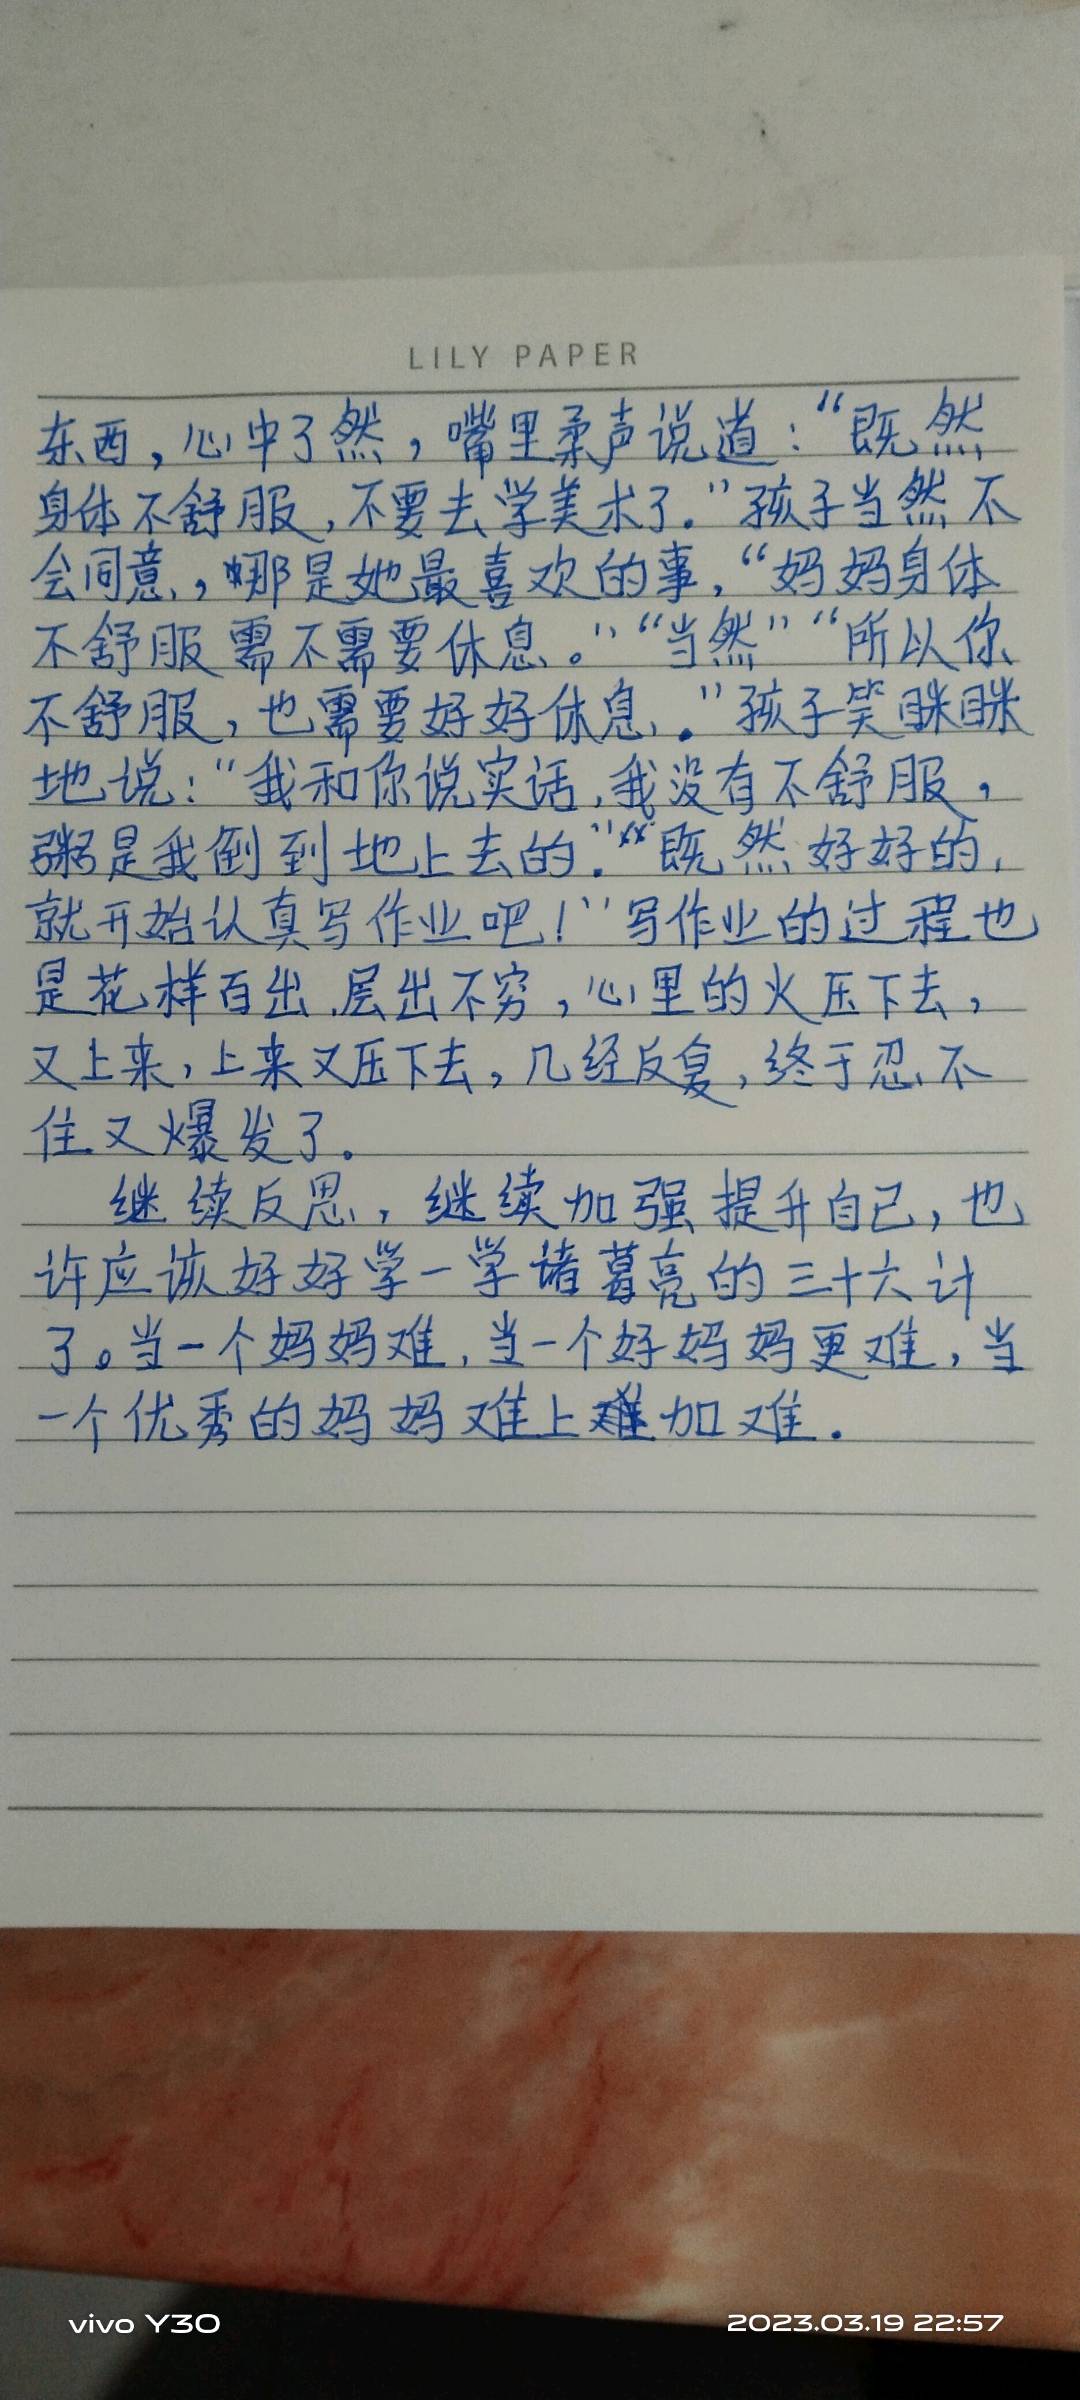 LILY PAPER
东西，心中了然，嘴里柔声说道：“既然
身体不舒服，不要去学美术了.”孩子当然不
会同意，哪是她最喜欢的事，“妈妈身体
不舒服需不需要休息。”“当然”“所以你
不舒服，也需要好好休息.”孩子笑眯眯
地说：“我和你说实话,我没有不舒服，
粥是我倒到地上去的.”“既然好好的,
就开始认真写作业吧！”写作业的过程也
是花样百出.层出不穷，心里的火压下去，
又上来，上来又压下去，几经反复，终于忍不
住又爆发了.
继续反思，继续加强提升自己，也
许应该好好学一学诸葛亮的三十六计
了。当一个妈妈难,当一个好妈妈更难，当
一个优秀的妈妈难上难加难.
vivo Y30
2023.03.19 22:57